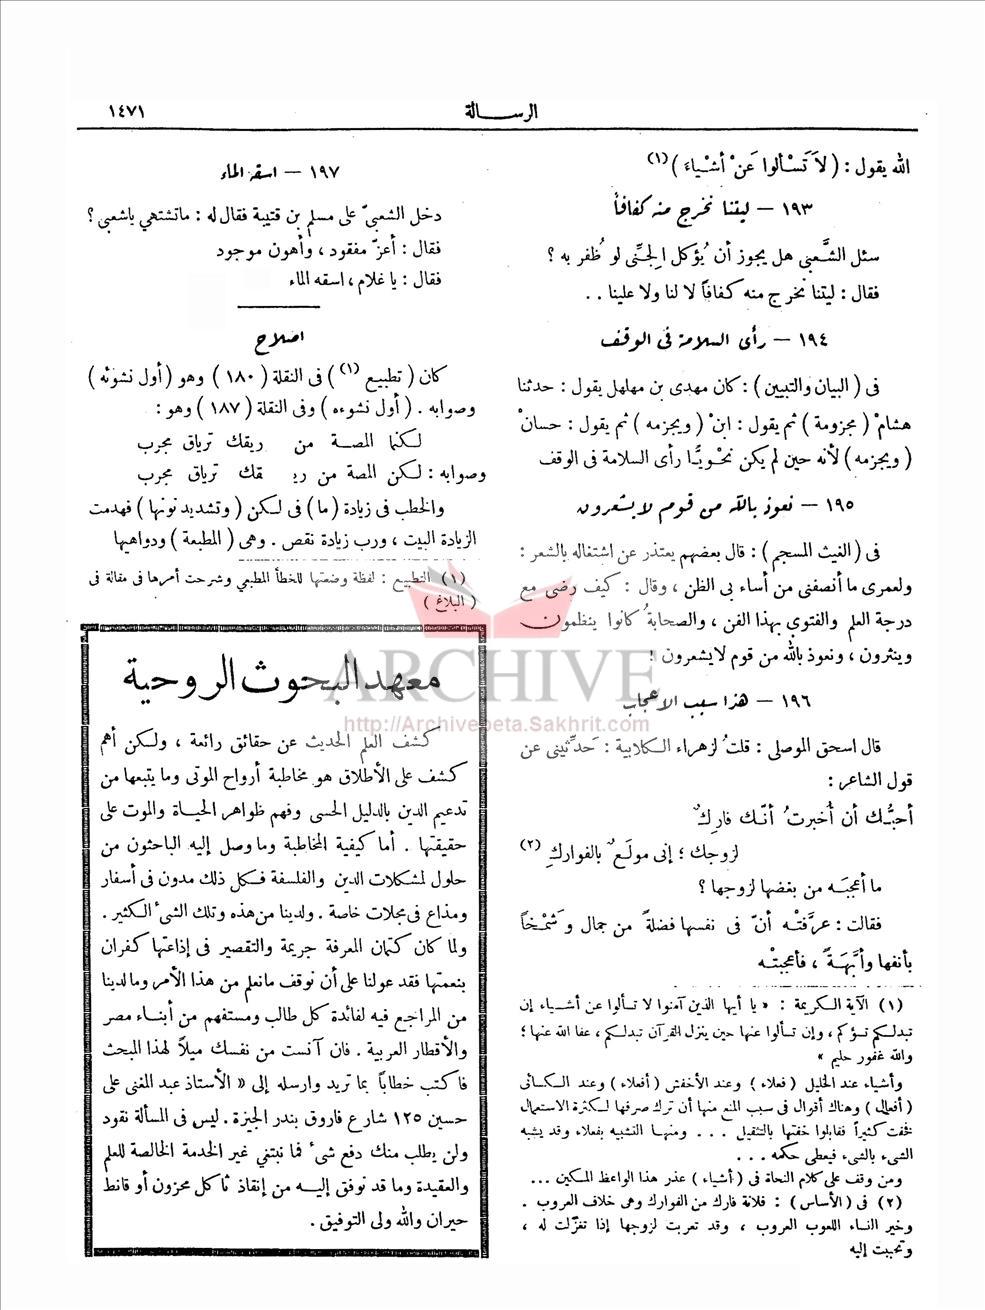 الرسالة
١٤٧١
الله يقول : ( لاَ تَسْألوا عَنْ أشْياءَ )(١)
١٩٣ — ليتنا نخرج منه كفافاً
سئل الشَّعبي هل يجوز أن يُؤكل الجِنِّي لو ظُفر به ؟
فقال : ليتنا نخرج منه كفافاً لا لنا ولا علينا . .
١٩٤ — رأى السلامة فى الوقف
فى ( البيان والتبيين ) : كان مهدى بن مهلهل يقول : حدثنا
هشامْ ( مجزومة ) ثم يقول : ابنْ ( ويجزمه ) ثم يقول : حسانْ
( ويجزمه ) لأنه حين لم يكن نحْويًّا رأى السلامة فى الوقف
١٩٥ — نعوذ بالله من قوم لا يشعرون
فى ( الغيث المسجم ) : قال بعضهم يعتذر عن اشتغاله بالشعر :
ولعمرى ما أنصفنى من أساء بى الظن ، وقال : كيف رضى مع
درجة العلم والفتوى بهذا الفن ، والصحابةُ كانوا ينظمون
وينثرون ، ونعوذ بالله من قوم لا يشعرون !
١٩٦ — هذا سبب الاعجاب
قال اسحق الموصلى : قلتُ لزهراء الكلابية : حَدِّثينى عن
قول الشاعر :
أحبُّك أن أُخبرتُ أنّك فاركٌ
لزوجك ؛ إنى مولَعٌ بالفواركِ (٢)
ما أعجبَه من بغضها لزوجها ؟
فقالت : عرَّفتْه أنّ فى نفسها فضلةً من جمال وشَمْخاً
بأنفها وأُبَّهَةً ، فأعجبتْه
(١) الآية الكريمة : « يا أيها الذين آمنوا لا تسألوا عن أشياء إن
تبدلكم تسؤكم ، وإن تسألوا عنها حين ينزل القرآن تبدلكم ، عفا الله عنها ؛
والله غفور حليم »
وأشياء عند الخليل ( فعلاء ) وعند الأخفش ( أفعلاء ) وعند الكسائى
( أفعال ) وهناك أقوال فى سبب المنع منها أن ترك صرفها لكثرة الاستعمال
فخفت كثيراً فقابلوا خفتها بالتثقيل . . . ومنها التشبيه بفعلاء وقد يشبه
الشىء بالشىء فيعطى حكمه . . .
ومن وقف على كلام النحاة فى ( أشياء ) عذر هذا الواعظ المسكين ...
(٢) فى ( الأساس ) : فلانة فارك من الفوارك وهى خلاف العروب .
وخير النساء اللعوب العروب ، وقد تعربت لزوجها إذا تغزلت له ،
وتحببت إليه
١٩٧ — اسقه الماء
دخل الشعبىّ على مسلم بن قتيبة فقال له : ماتشتهي ياشعبى ؟
فقال : أعزّ مفقود ، وأهون موجود
فقال : يا غلام ، اسقه الماء
اصلاح
كان ( تطبيع (١) ) فى النقلة ( ١٨٠ ) وهو ( أول نشوئه )
وصوابه . ( أول نشوءه ) وفى النقلة ( ١٨٧ ) وهو :
لكنما المصة من ريقك ترياق مجرب
وصوابه : لكن المصة من ريـ ـقك ترياق مجرب
والخطب فى زيادة ( ما ) فى لكن ( وتشديد نونها ) فهدمت
الزيادة البيت ، ورب زيادة نقص . وهى ( المطبعة ) ودواهيها
(١) التطبيع : لفظة وضعتها للخطأ المطبعي وشرحت أمرها فى مقالة فى
( البلاغ )
معهد البحوث الروحية
كشف العلم الحديث عن حقائق رائعة ، ولكن أهم
كشف على الأطلاق هو مخاطبة أرواح الموتى وما يتبعها من
تدعيم الدين بالدليل الحسى وفهم ظواهر الحياة والموت على
حقيقتها . أما كيفية المخاطبة وما وصل إليه الباحثون من
حلول لمشكلات الدين والفلسفة فكل ذلك مدون فى أسفار
ومذاع فى مجلات خاصة . ولدينا من هذه وتلك الشىء الكثير .
ولما كان كتمان المعرفة جريمة والتقصير فى إذاعتها كفران
بنعمتها فقد عولنا على أن نوقف مانعلم من هذا الأمر وما لدينا
من المراجع فيه لفائدة كل طالب ومستفهم من أبناء مصر
والأقطار العربية . فان آنست من نفسك ميلاً لهذا البحث
فاكتب خطاباً بما تريد وارسله إلى « الأستاذ عبد المغنى على
حسين ١٢٥ شارع فاروق بندر الجيزة . ليس فى المسألة نقود
ولن يطلب منك دفع شىء فما نبتغى غير الخدمة الخالصة للعلم
والعقيدة وما قد نوفق إليه من إنقاذ ثاكل محزون أو قانط
حيران والله ولى التوفيق .
ARCHIVE
http://Archivebeta.Sakhrit.com